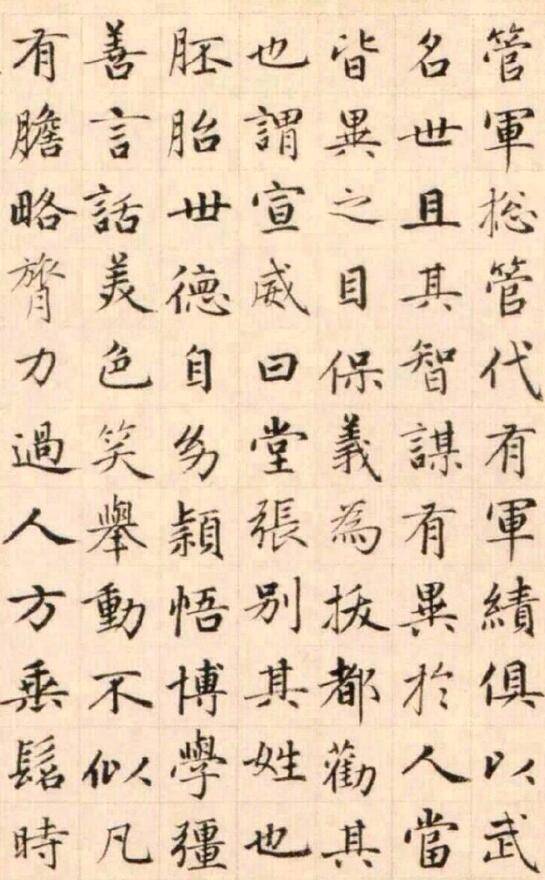 管軍捴管代有軍績俱以武
名世且其智謀有異於人當
皆異之目保義為拔都勸其
也謂宣威曰堂張別其姓也
胚胎丗德自幼穎悟博學彊
善言話美色笑舉動不似凡
有膽略膂力過人方垂髫時